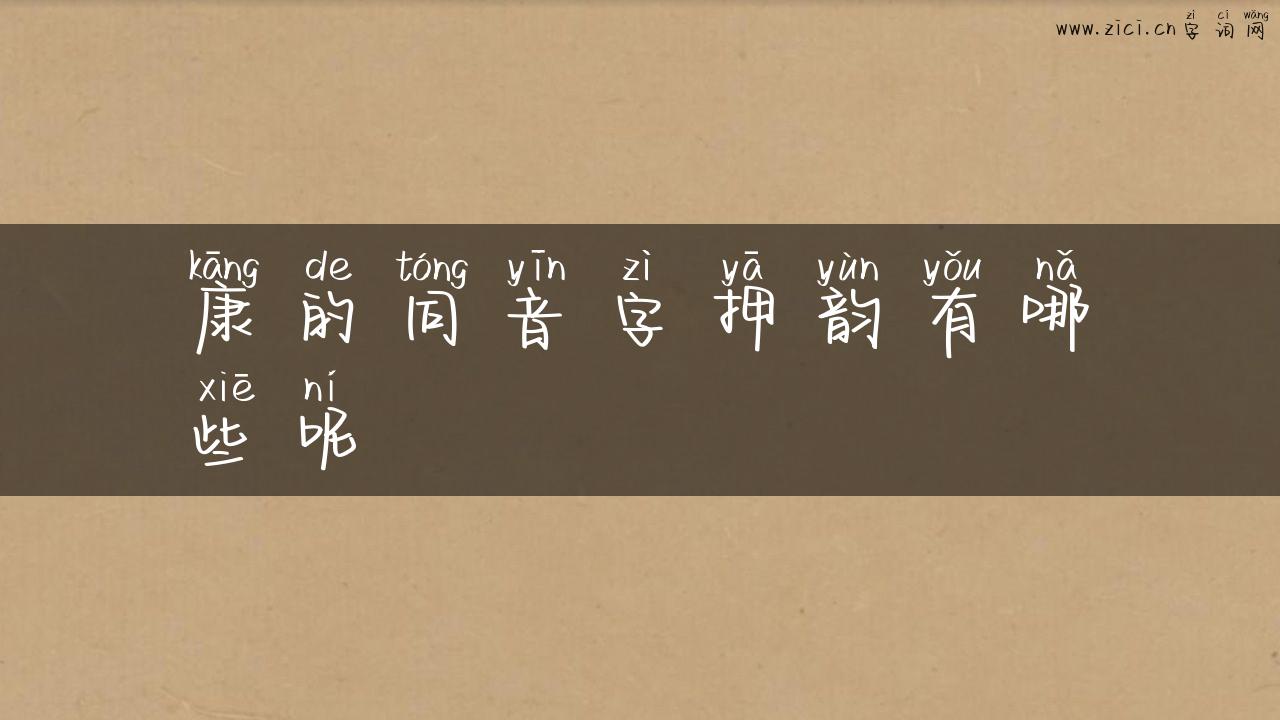 zì cí wǎng
www.zici.cn 字词网
kāng de tóng yīn zì yā yùn yǒu nǎ
康的同音字押韵有哪
xiē ní
些呢